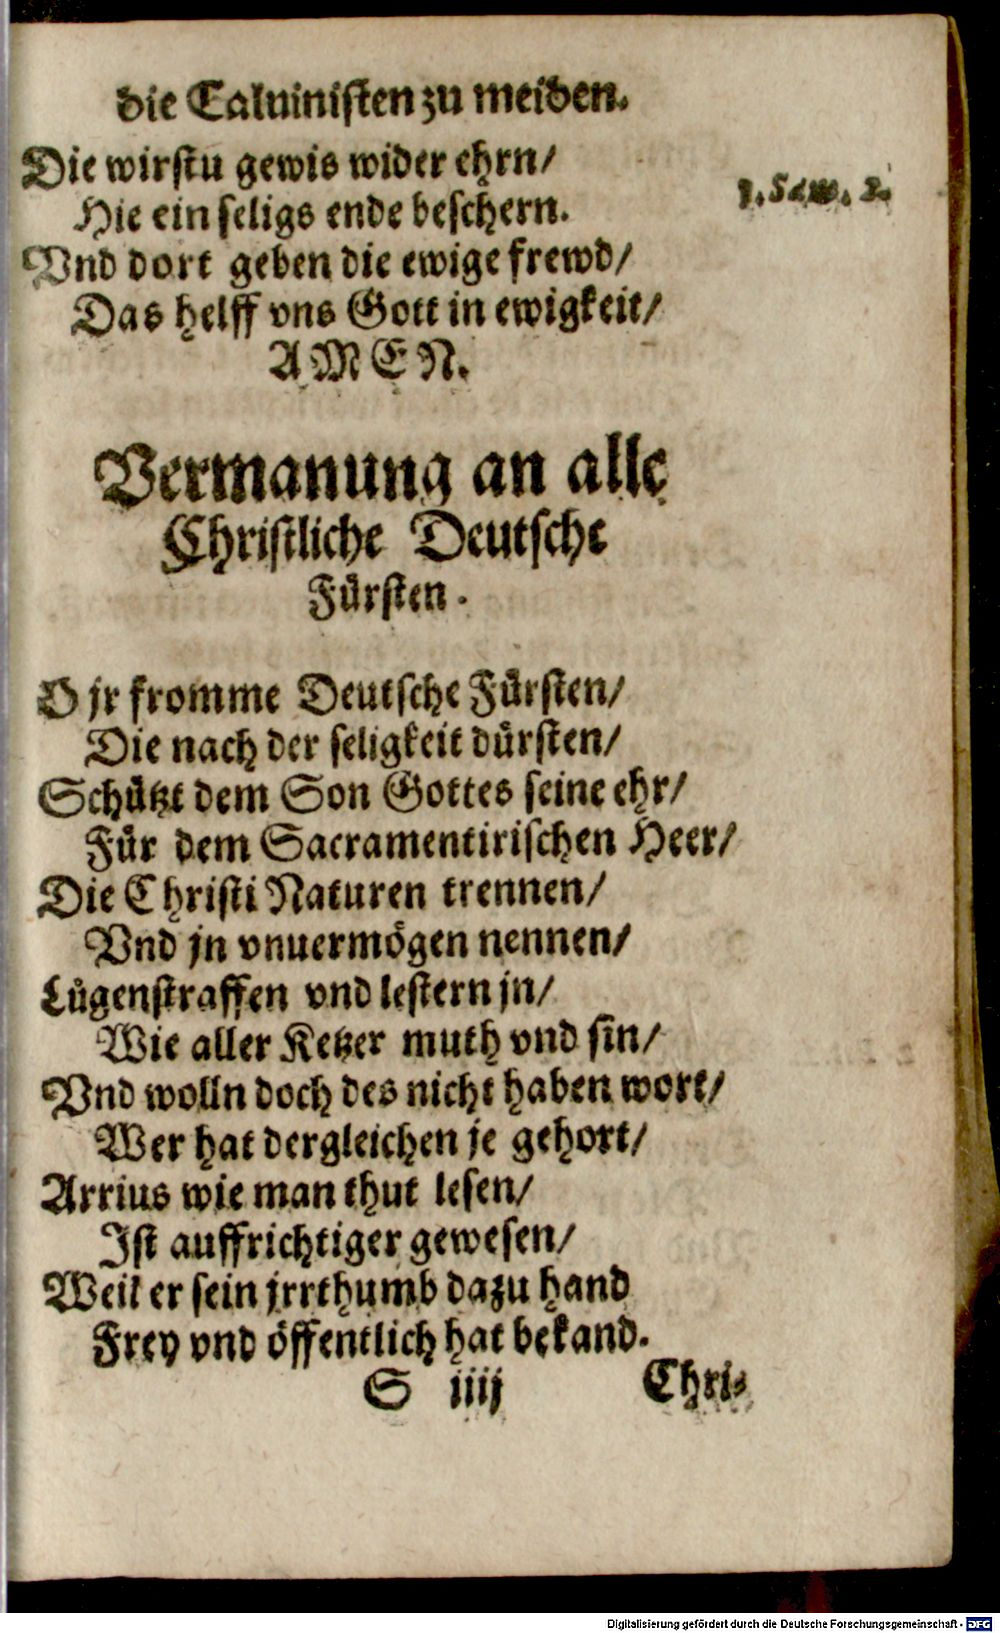 die Caluinisten zu meiden.
Die wirstu gewis wider ehrn/
1. Sam. 2.
Hie ein seligs ende beschern.
Vnd dort geben die ewige frewd/
Das helff vns Gott in ewigkeit/
AMEN.
Vermanung an alle
Christliche Deutsche
Fürsten.
O jr fromme Deutsche Fürsten/
Die nach der seligkeit dürsten/
Schützt dem Son Gottes seine ehr/
Für dem Sacramentirischen Heer/
Die Christi Naturen trennen/
Vnd jn vnuermögen nennen/
Lügenstraffen vnd lestern jn/
Wie aller Ketzer muth vnd sin/
Vnd wolln doch des nicht haben wort/
Wer hat dergleichen je gehort/
Arrius wie man thut lesen/
Ist auffrichtiger gewesen/
Weil er sein jrrthumb dazu hand
Frey vnd öffentlich hat bekand.
S iiij Chri-
Digitalisierung gefördert durch die Deutsche Forschungsgemeinschaft - DFG